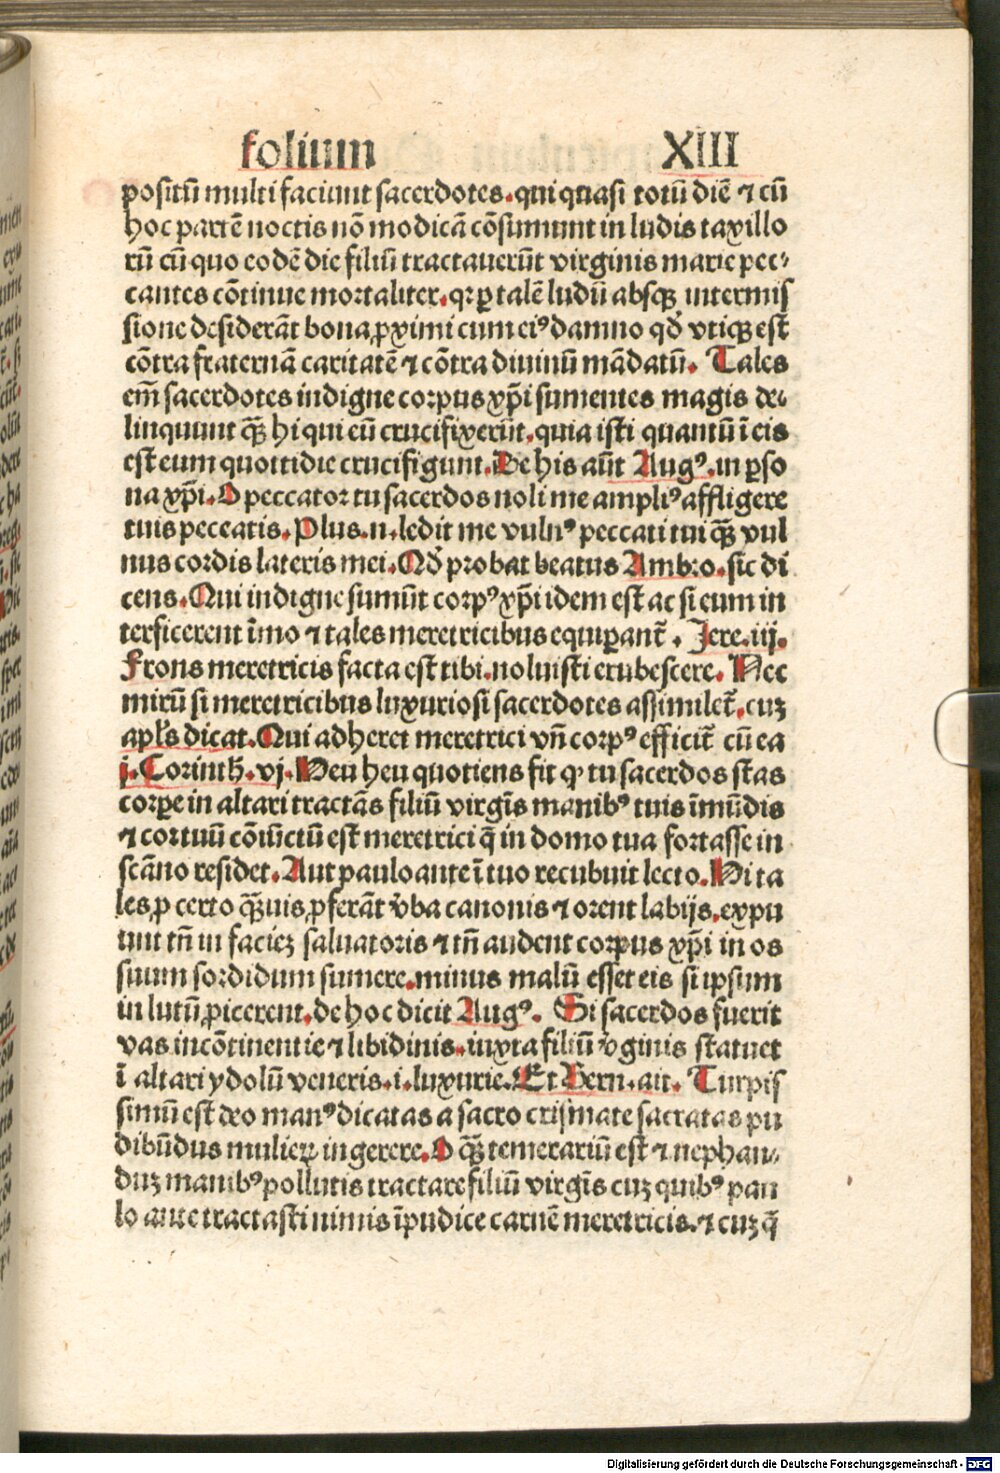 folium XIII
positū multi faciunt sacerdotes. qui quasi totū diē ⁊ cū
hoc partē noctis nō modicā cōsumunt in ludis taxillo
rū cū quo eodē die filiū tractauerūt virginis marie pec⸗
cantes cōtinue mortaliter. qꝛ ꝑ talē ludū absqꝫ intermis
sione desiderāt bona ꝓximi cum eiꝰ damno qđ vtiqꝫ est
cōtra fraternā caritatē ⁊ cōtra diuinū mādatū. Tales
em̄ sacerdotes indigne corpus xp̄i sumentes magis de⸗
linquunt qꝫ̄ hi qui eū crucifixerūt. quia isti quantū ī eis
est eum quottidie crucifigunt. De his aūt Augꝰ. in ꝑso
na xp̄i. O peccator tu sacerdos noli me ampliꝰ affligere
tuis peccatis. Plus .n. ledit me vulnꝰ peccati tui qꝫ̄ vul
nus cordis lateris mei. Qđ probat beatus Ambro. sic di
cens. Qui indigne sumūt corpꝰ xp̄i idem est ac si eum in
terficerent īmo ⁊ tales meretricibus equiꝑant̄. Jere. iij.
Frons meretricis facta est tibi. noluisti erubescere. Nec
mirū si meretricibus luxuriosi sacerdotes assimilet̄. cuꝫ
apl̄s dicat. Qui adheret meretrici vn̄ corpꝰ efficit̄ cū ea
j. Corinth. vj. Heu heu quotiens fit ꝙ tu sacerdos stas
corꝑe in altari tractās filiū virgīs manibꝰ tuis īmūdis
⁊ cor tuū cōiūctū est meretrici q̄ in domo tua fortasse in
scāno residet. Aut paulo ante ī tuo recubuit lecto. Hi ta
les ꝓ certo qꝫ̄uis ꝓferāt v̄ba canonis ⁊ orent labijs. expu
unt tn̄ in facieꝫ saluatoris ⁊ tn̄ audent corpus xp̄i in os
suum sordidum sumere. minus malū esset eis si ipsum
in lutū ꝓicerent. de hoc dicit Augꝰ. Si sacerdos fuerit
vas incōtinentie ⁊ libidinis. iuxta filiū v̄ginis statuet
ī altari ydolū veneris .i. luxurie. Et Bern. ait. Turpis
simū est deo manꝰ dicatas a sacro crismate sacratas pu
dibūdus mulieꝝ ingerere. O qꝫ̄ temerariū est ⁊ nephan⸗
duꝫ manibꝰ pollutis tractare filiū virgīs cuꝫ quibꝰ pau
lo ante tractasti nimis īpudice carnē meretricis. ⁊ cuꝫ q̄
Digitalisierung gefördert durch die Deutsche Forschungsgemeinschaft - DFG